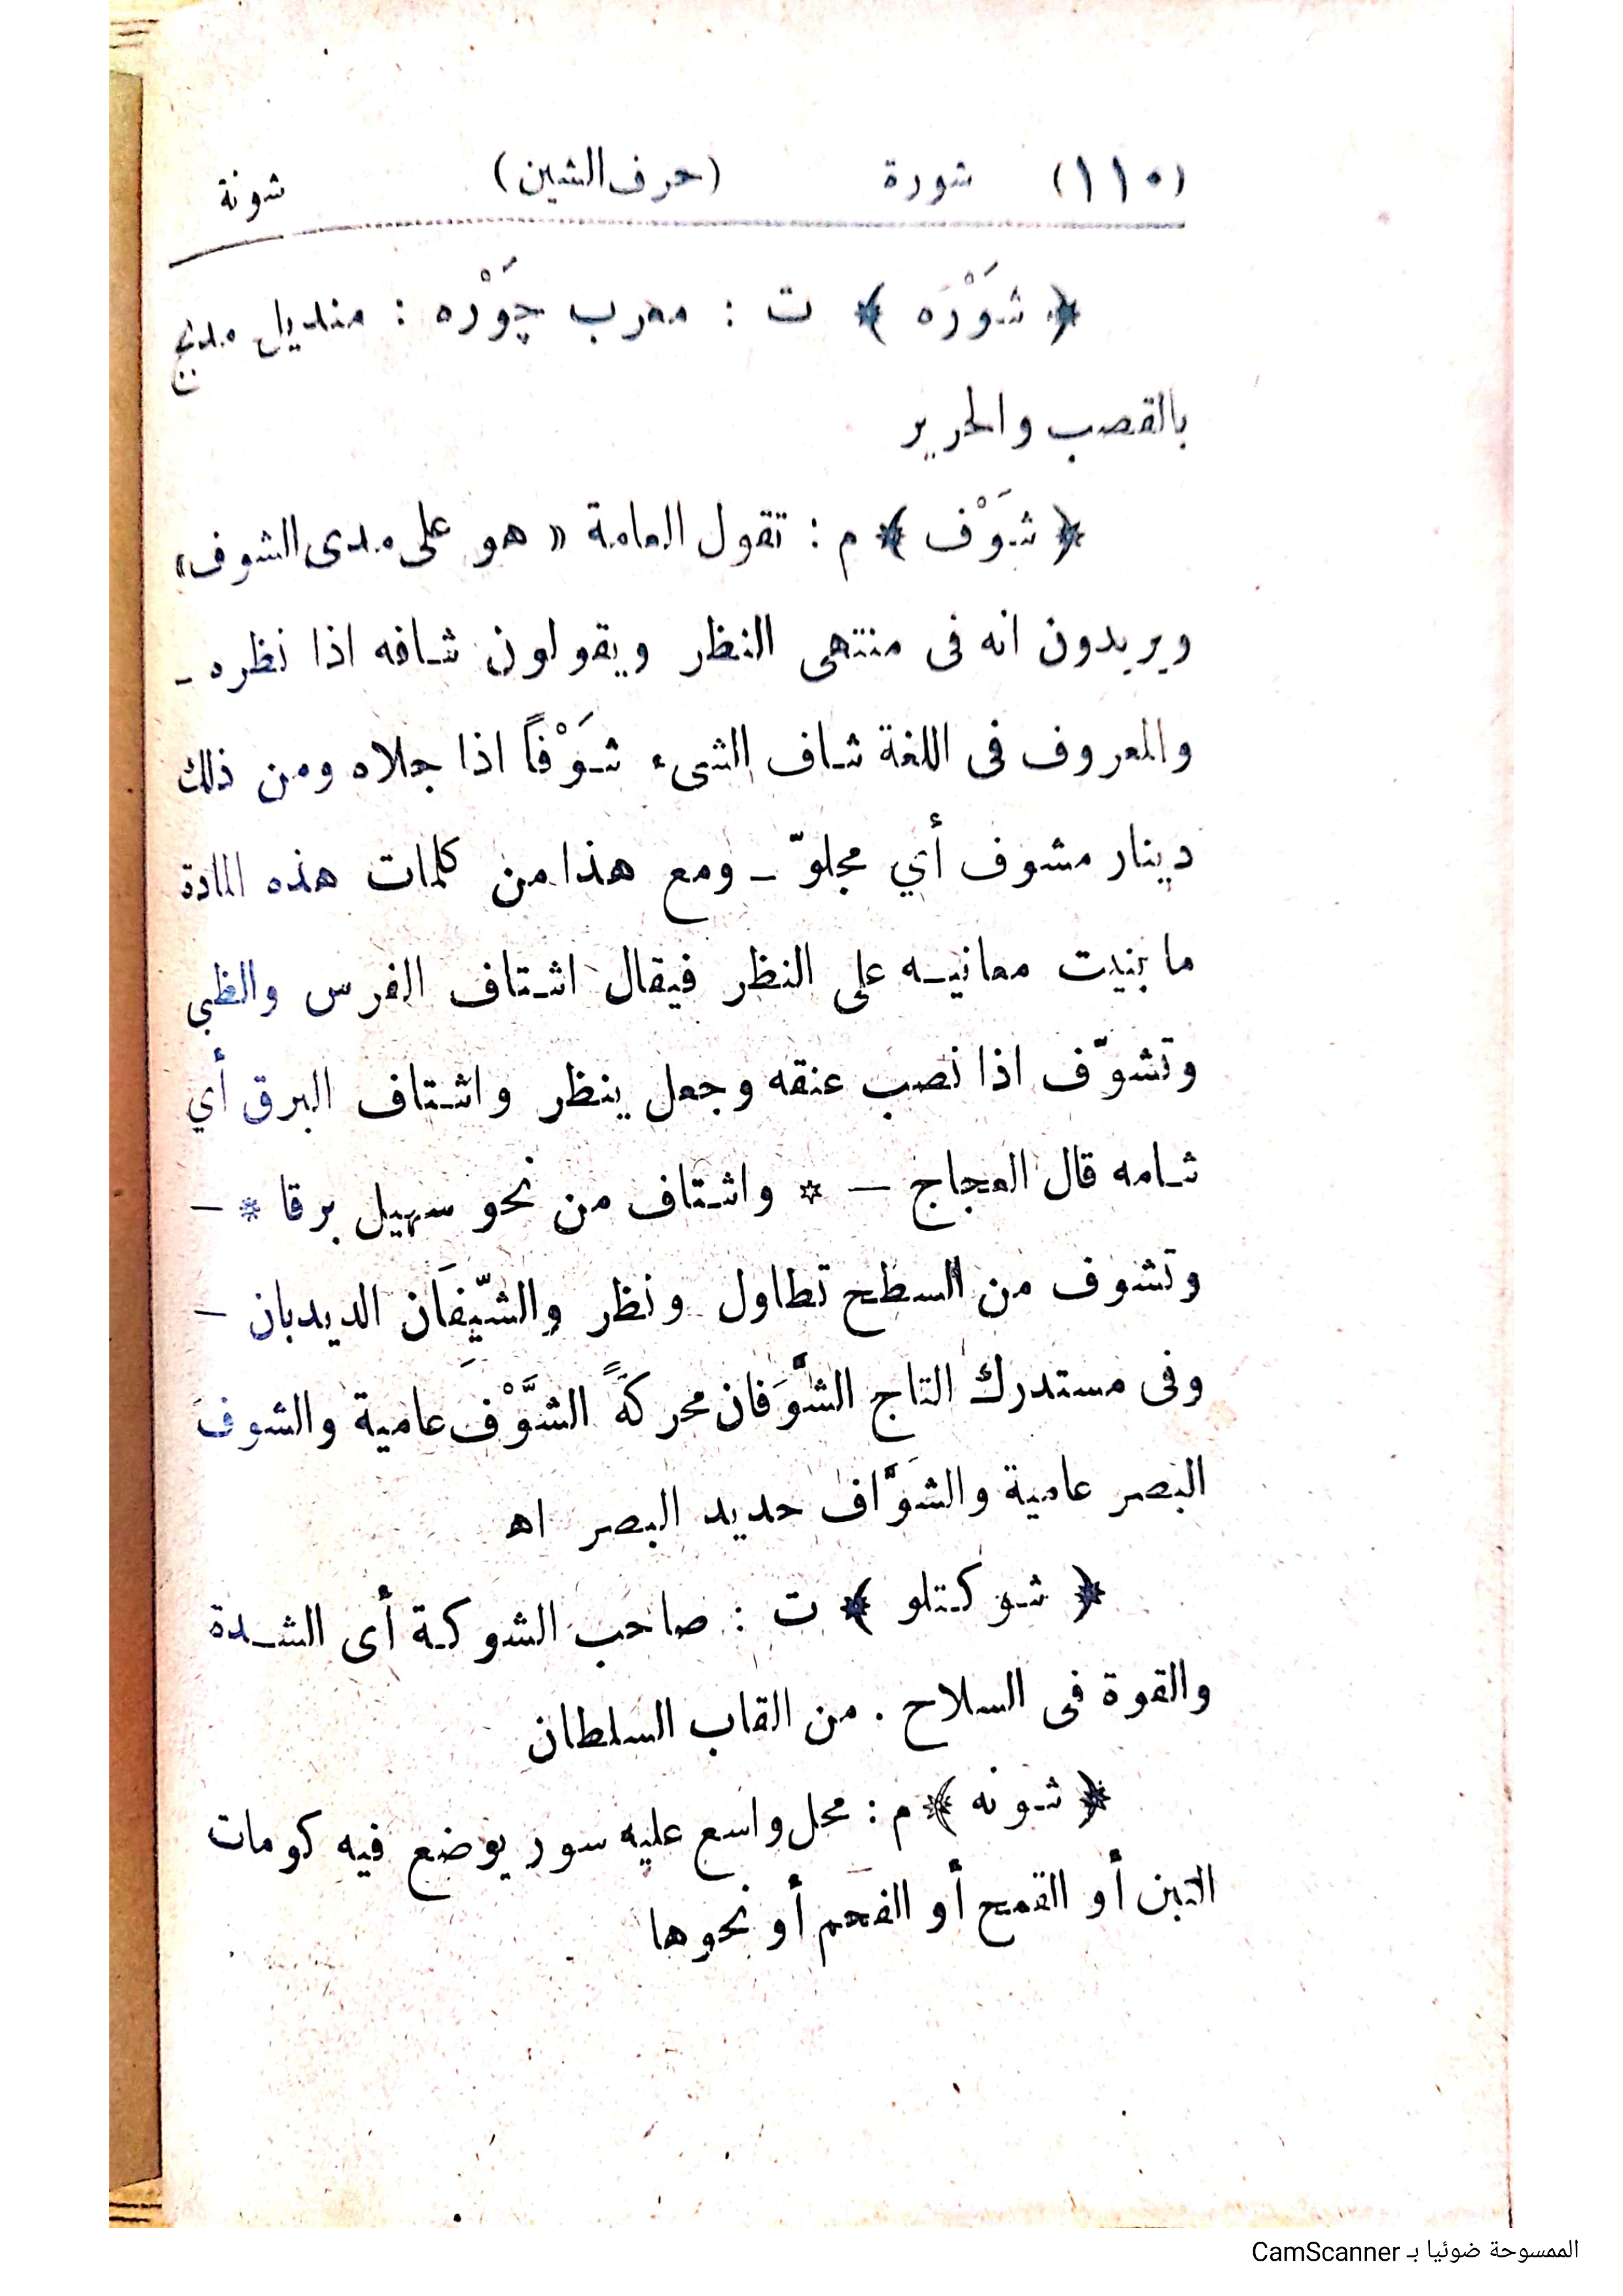 (١١٠) شورة (حرف الشين) شونة
﴿ شَوْرَه ﴾ ت : معرب چَوْره : منديل مدبج
بالقصب والحرير
﴿ شَوْف ﴾ م : تقول العامة « هو على مدى الشوف»
ويريدون انه فى منتهى النظر ويقولون شافه اذا نظره ـ
والمعروف فى اللغة شاف الشىء شَوْفاً اذا جلاه ومن ذلك
دينار مشوف أي مجلوّ ـ ومع هذا من كلمات هذه المادة
ما بنيت معانيه على النظر فيقال اشتاف الفرس والظبي
وتشوّف اذا نصب عنقه وجعل ينظر واشتاف البرق أي
شامه قال العجاج — * واشتاف من نحو سهيل برقا * —
وتشوف من السطح تطاول ونظر والشيِّفَان الديدبان —
وفى مستدرك التاج الشَّوَفان محركةً الشَّوْف عامية والشوف
البصر عامية والشَوَّاف حديد البصر اه
﴿ شوكتلو ﴾ ت : صاحب الشوكة أى الشدة
والقوة فى السلاح . من القاب السلطان
﴿ شونه ﴾ م : محل واسع عليه سور يوضع فيه كومات
التبن أو القمح أو الفحم أو نحوها
الممسوحة ضوئيا بـ CamScanner